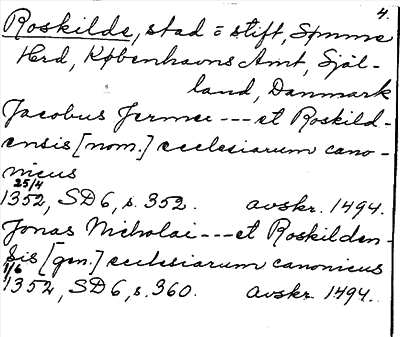 4.
Roskilde, stad = stift, Sømme
Hrd, Københavns Amt, Själ-
land, Danmark
Jacobus Fermer --- et Roskild-
ensis [nom.] ecclesiarum cano-
nicus
25/4
1352, SD 6, s. 352. avskr. 1494.
Jonas Nicholai --- et Roskilden-
sis [gen.] ecclesiarum canonicus
1/6
1352, SD 6, s. 360. avskr. 1494.